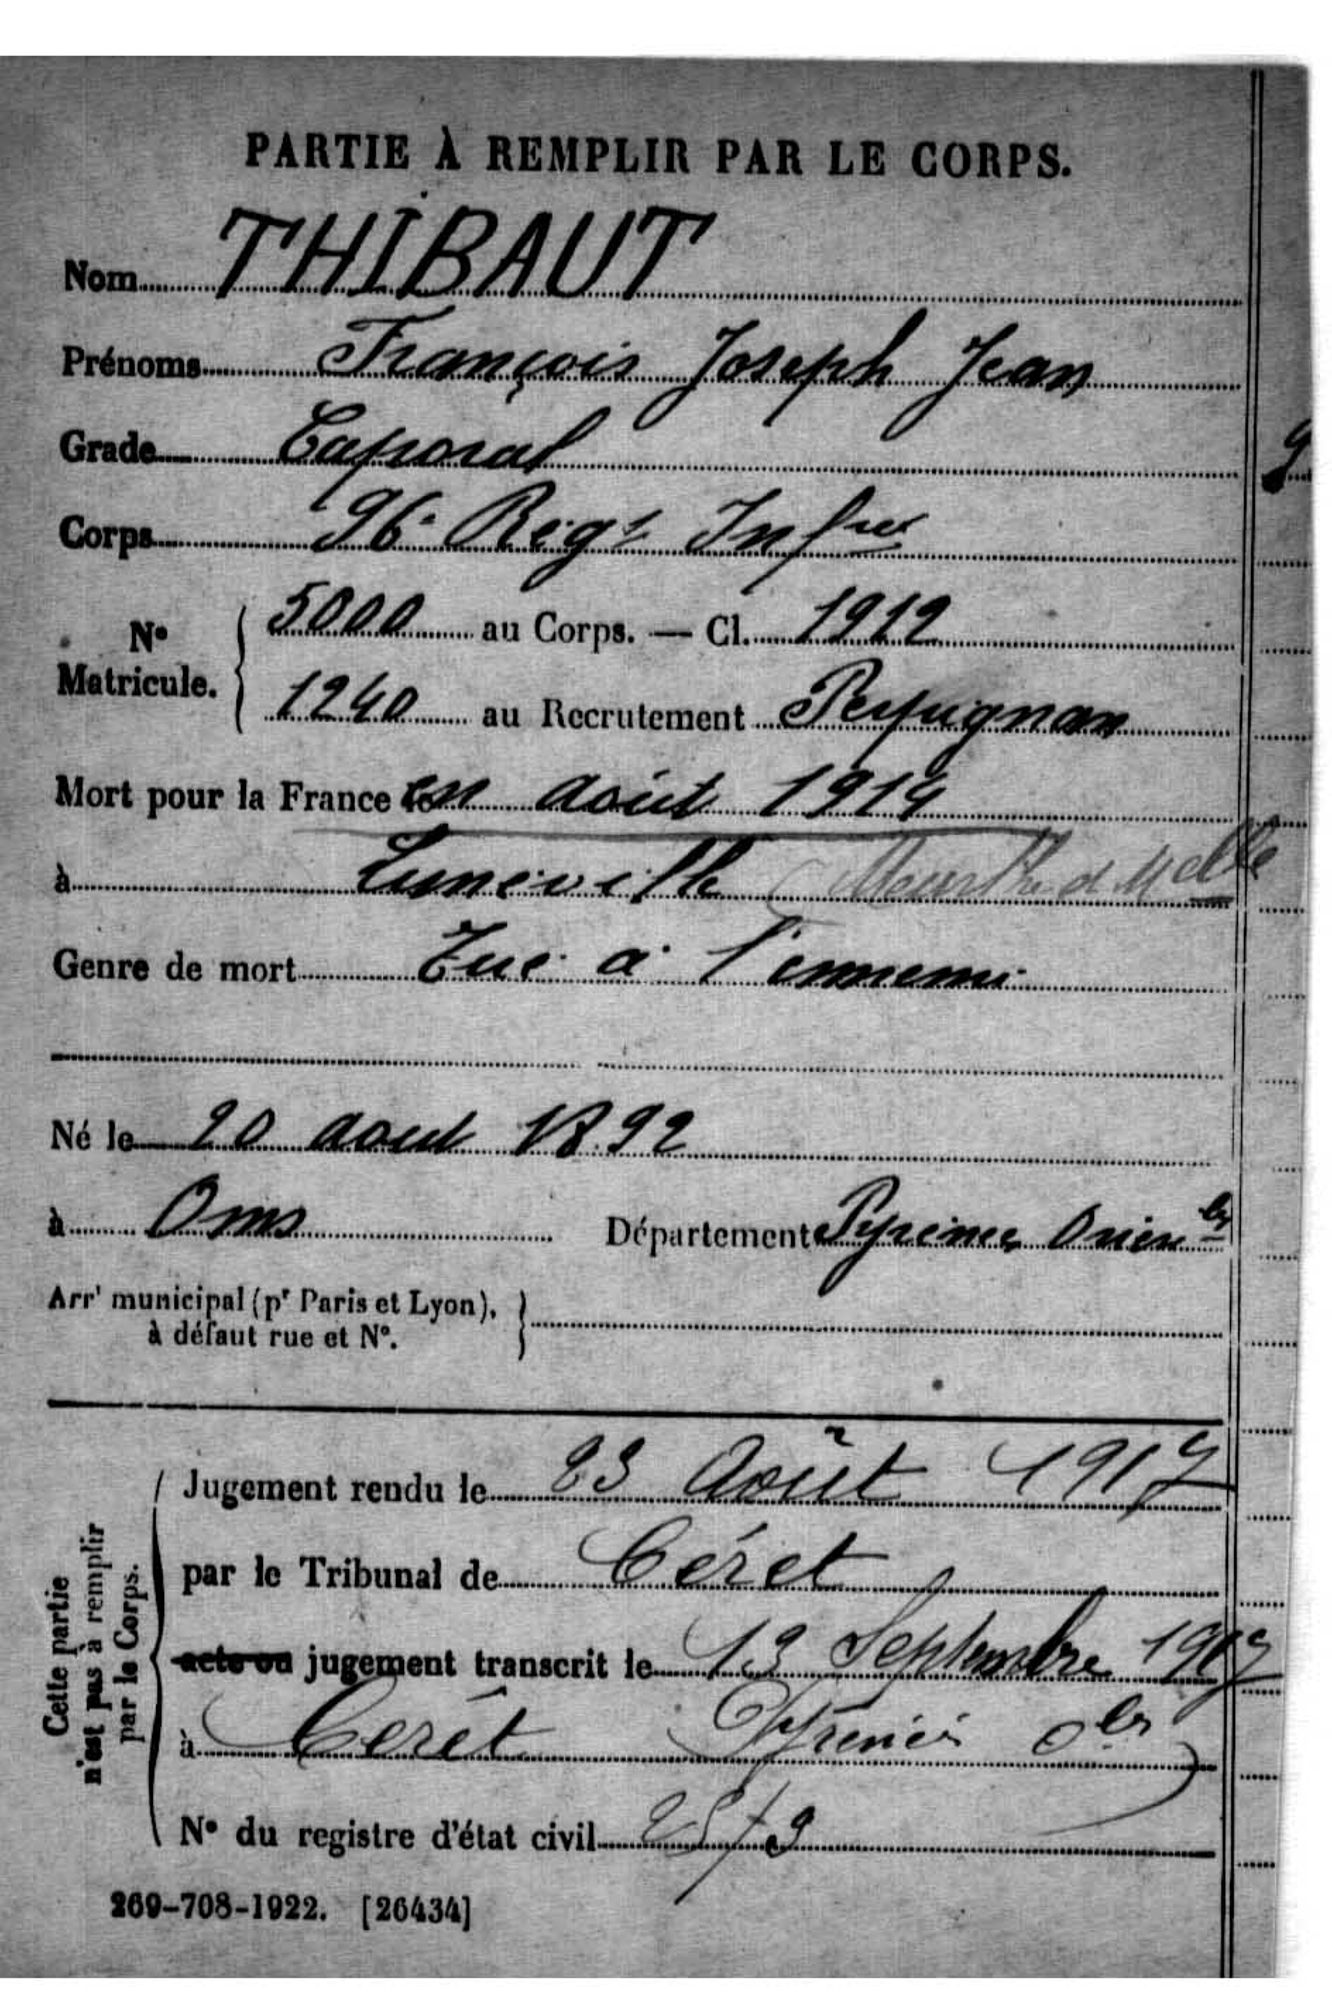 PARTIE À REMPLIR PAR LE CORPS.
Nom THIBAUT
Prénoms François Joseph Jean
Grade Caporal
Corps 96e Regt Infrie
No Matricule. 5000 au Corps. — Cl. 1912
1240 au Recrutement Perpignan
Mort pour la France en août 1914
à Lunéville (Meurthe et Mselle
Genre de mort Tué à l'ennemi
Né le 20 aout 1892
à Oms Département Pyrénées Orienles
Arrt municipal (pr Paris et Lyon),
à défaut rue et No.
Cette partie n'est pas à remplir par le Corps.
Jugement rendu le 23 Août 1917
par le Tribunal de Céret
acte ou jugement transcrit le 13 Septembre 1917
à Céret Pyrénées Oles
No du registre d'état civil
269-708-1922. [26434]